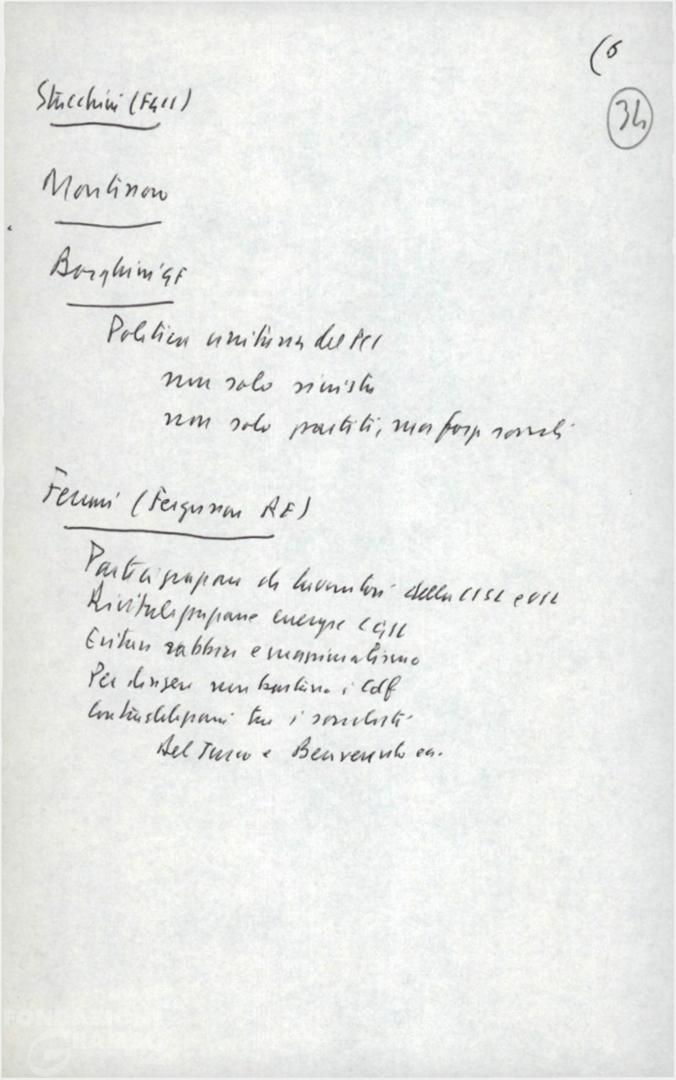 (6
34
Stucchini (FGCI)
Borghini GF
Politica unitaria del PCI
non solo sinistra
non solo partiti, ma forze sociali
Ferrari (Ferguson AE)
Partecipazione di lavoratori della CISL e UIL
Rivitalizzazione energie CGIL
Evitare rabbia e massimalismo
Per dirigere non bastano i CdF
Contraddizioni tra i socialisti
Del Turco e Benvenuto
FONDAZIONE
GRAMSCI